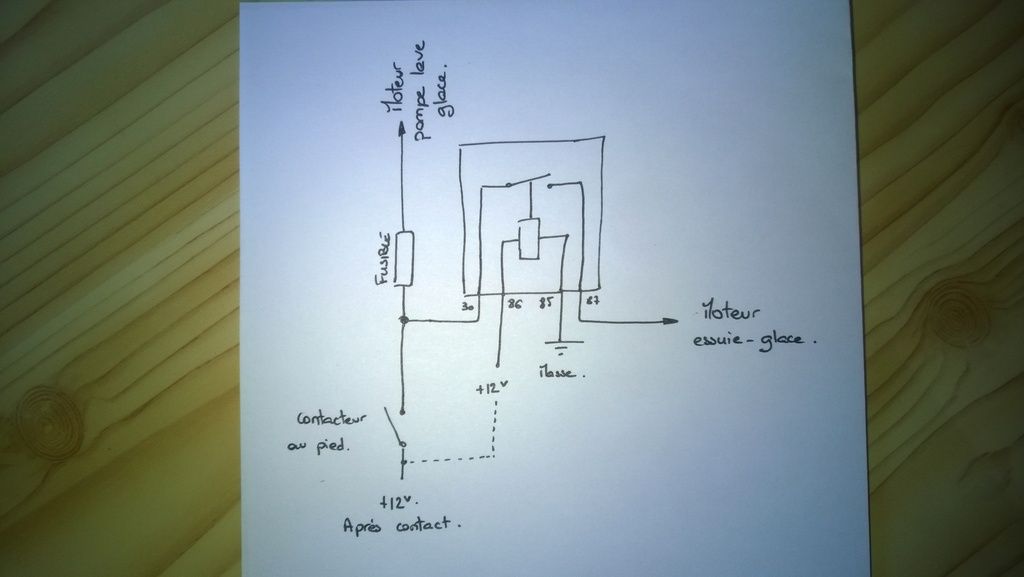 Moteur
pompe lave
glace.
FUSIBLE
30
86
85
87
Moteur
essuie-glace.
Masse.
+12v
Contacteur
au pied.
+12v.
Après contact.